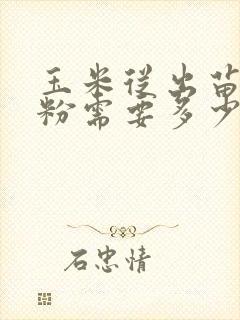 玉米从出苗
粉需要多少
石忠情